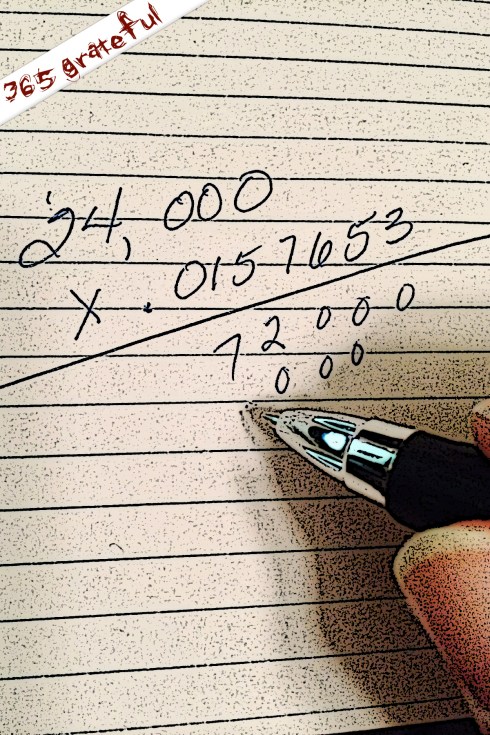 365 grateful
24,000
X .0157653
72000
0000